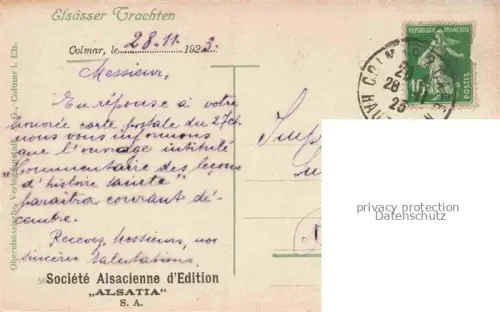 Elsässer Trachten
Colmar, le 28.11. 1923.
Messieur,
En réponse à votre
honorée carte postale du 27 ct.
nous vous informons
que l'ouvrage intitulé
"Commentaire des leçons
d'histoire sainte"
paraîtra courant dé-
cembre.
Recevez, Messieurs, nos
sincères salutations.
Société Alsacienne d'Edition
„ALSATIA“
S. A.
Oberelsässische Verlagsanstalt A. G., Colmar i. Els.
REPUBLIQUE FRANÇAISE
10
POSTES
COLMAR
28
23
HAUT
Imp
privacy protection
Datenschutz